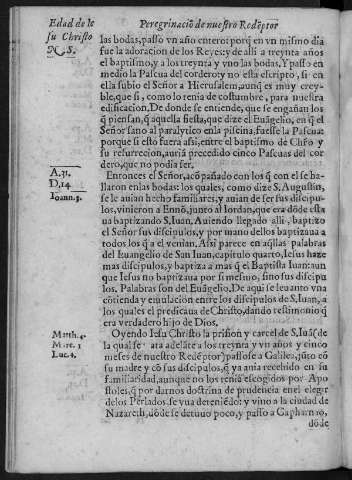 Edad de Ie
su Christo
N. S.
Peregrinaciõ de nuestro Redẽptor
las bodas, passo vn año entero: porq̃ en vn mismo dia
fue la adoracion de los Reyes: y de alli a treynta años
el baptismo, y a los treynta y vno las bodas, Y passo en
medio la Pascua del cordero: y no esta escripto, si en
ella subio el Señor a Hierusalem, aunq̃ es muy crey-
ble, que si, como lo tenia de costumbre, para nuestra
edificacion. De donde se entiende, que se engañan los
q̃ piensan, q̃ aquella fiesta, que dize el Euãgelio, en q̃ el
Señor sano al paralytico en la piscina, fuesse la Pascua:
porque si esto fuera assi, entre el baptismo de Chr̃o y
su resurrecion, auria precedido cinco Pascuas del cor
dero, que no podia ser.
A. 31.
D. 14
Ioann. 3.
Entonces el Señor, acõpañado con los q̃ con el se ha-
llaron en las bodas: los quales, como dize S. Augustin,
se le auian hecho familiares, y auian de ser sus discipu-
los, vinieron a Ennõ, junto al Iordan, que era dõde esta
ua baptizando S. Iuan. Auiendo llegado alli, baptizo
el Señor sus discipulos, y por mano dellos baptizaua a
todos los q̃ a el venian. Assi parece en aq̃llas palabras
del Euangelio de San Iuan, capitulo quarto, Iesus haze
mas discipulos, y baptiza a mas q̃ el Baptista Iuan: aun
que Iesus no baptizaua por si mesmo, sino sus discipu
los. Palabras son del Euãgelio, De aqui se leuanto vna
cõtienda y emulacion entre los discipulos de S. Iuan, a
los quales el predicaua de Christo, dando testimonio q̃
era verdadero hijo de Dios.
Matth. 4.
Marc. 1
Luc. 4.
Oyendo Iesu Christo la prision y carcel de S. Iuã (de
la qual se ata adelãte a los treynta y vn años y cinco
meses de nuestro Redẽptor) passose a Galilea, jũto cõ
su madre y cõ sus discipulos, q̃ ya ania recebido en su
familiaridad, aunque no los tenia escogidos por Apo
stoles, q̃ por darnos doctrina de prudencia en el elegir
de los Perlados, se yua deteniẽdo: y vino a la ciudad de
Nazareth, dõde se detuuo poco, y passo a Capharnao,
dõde